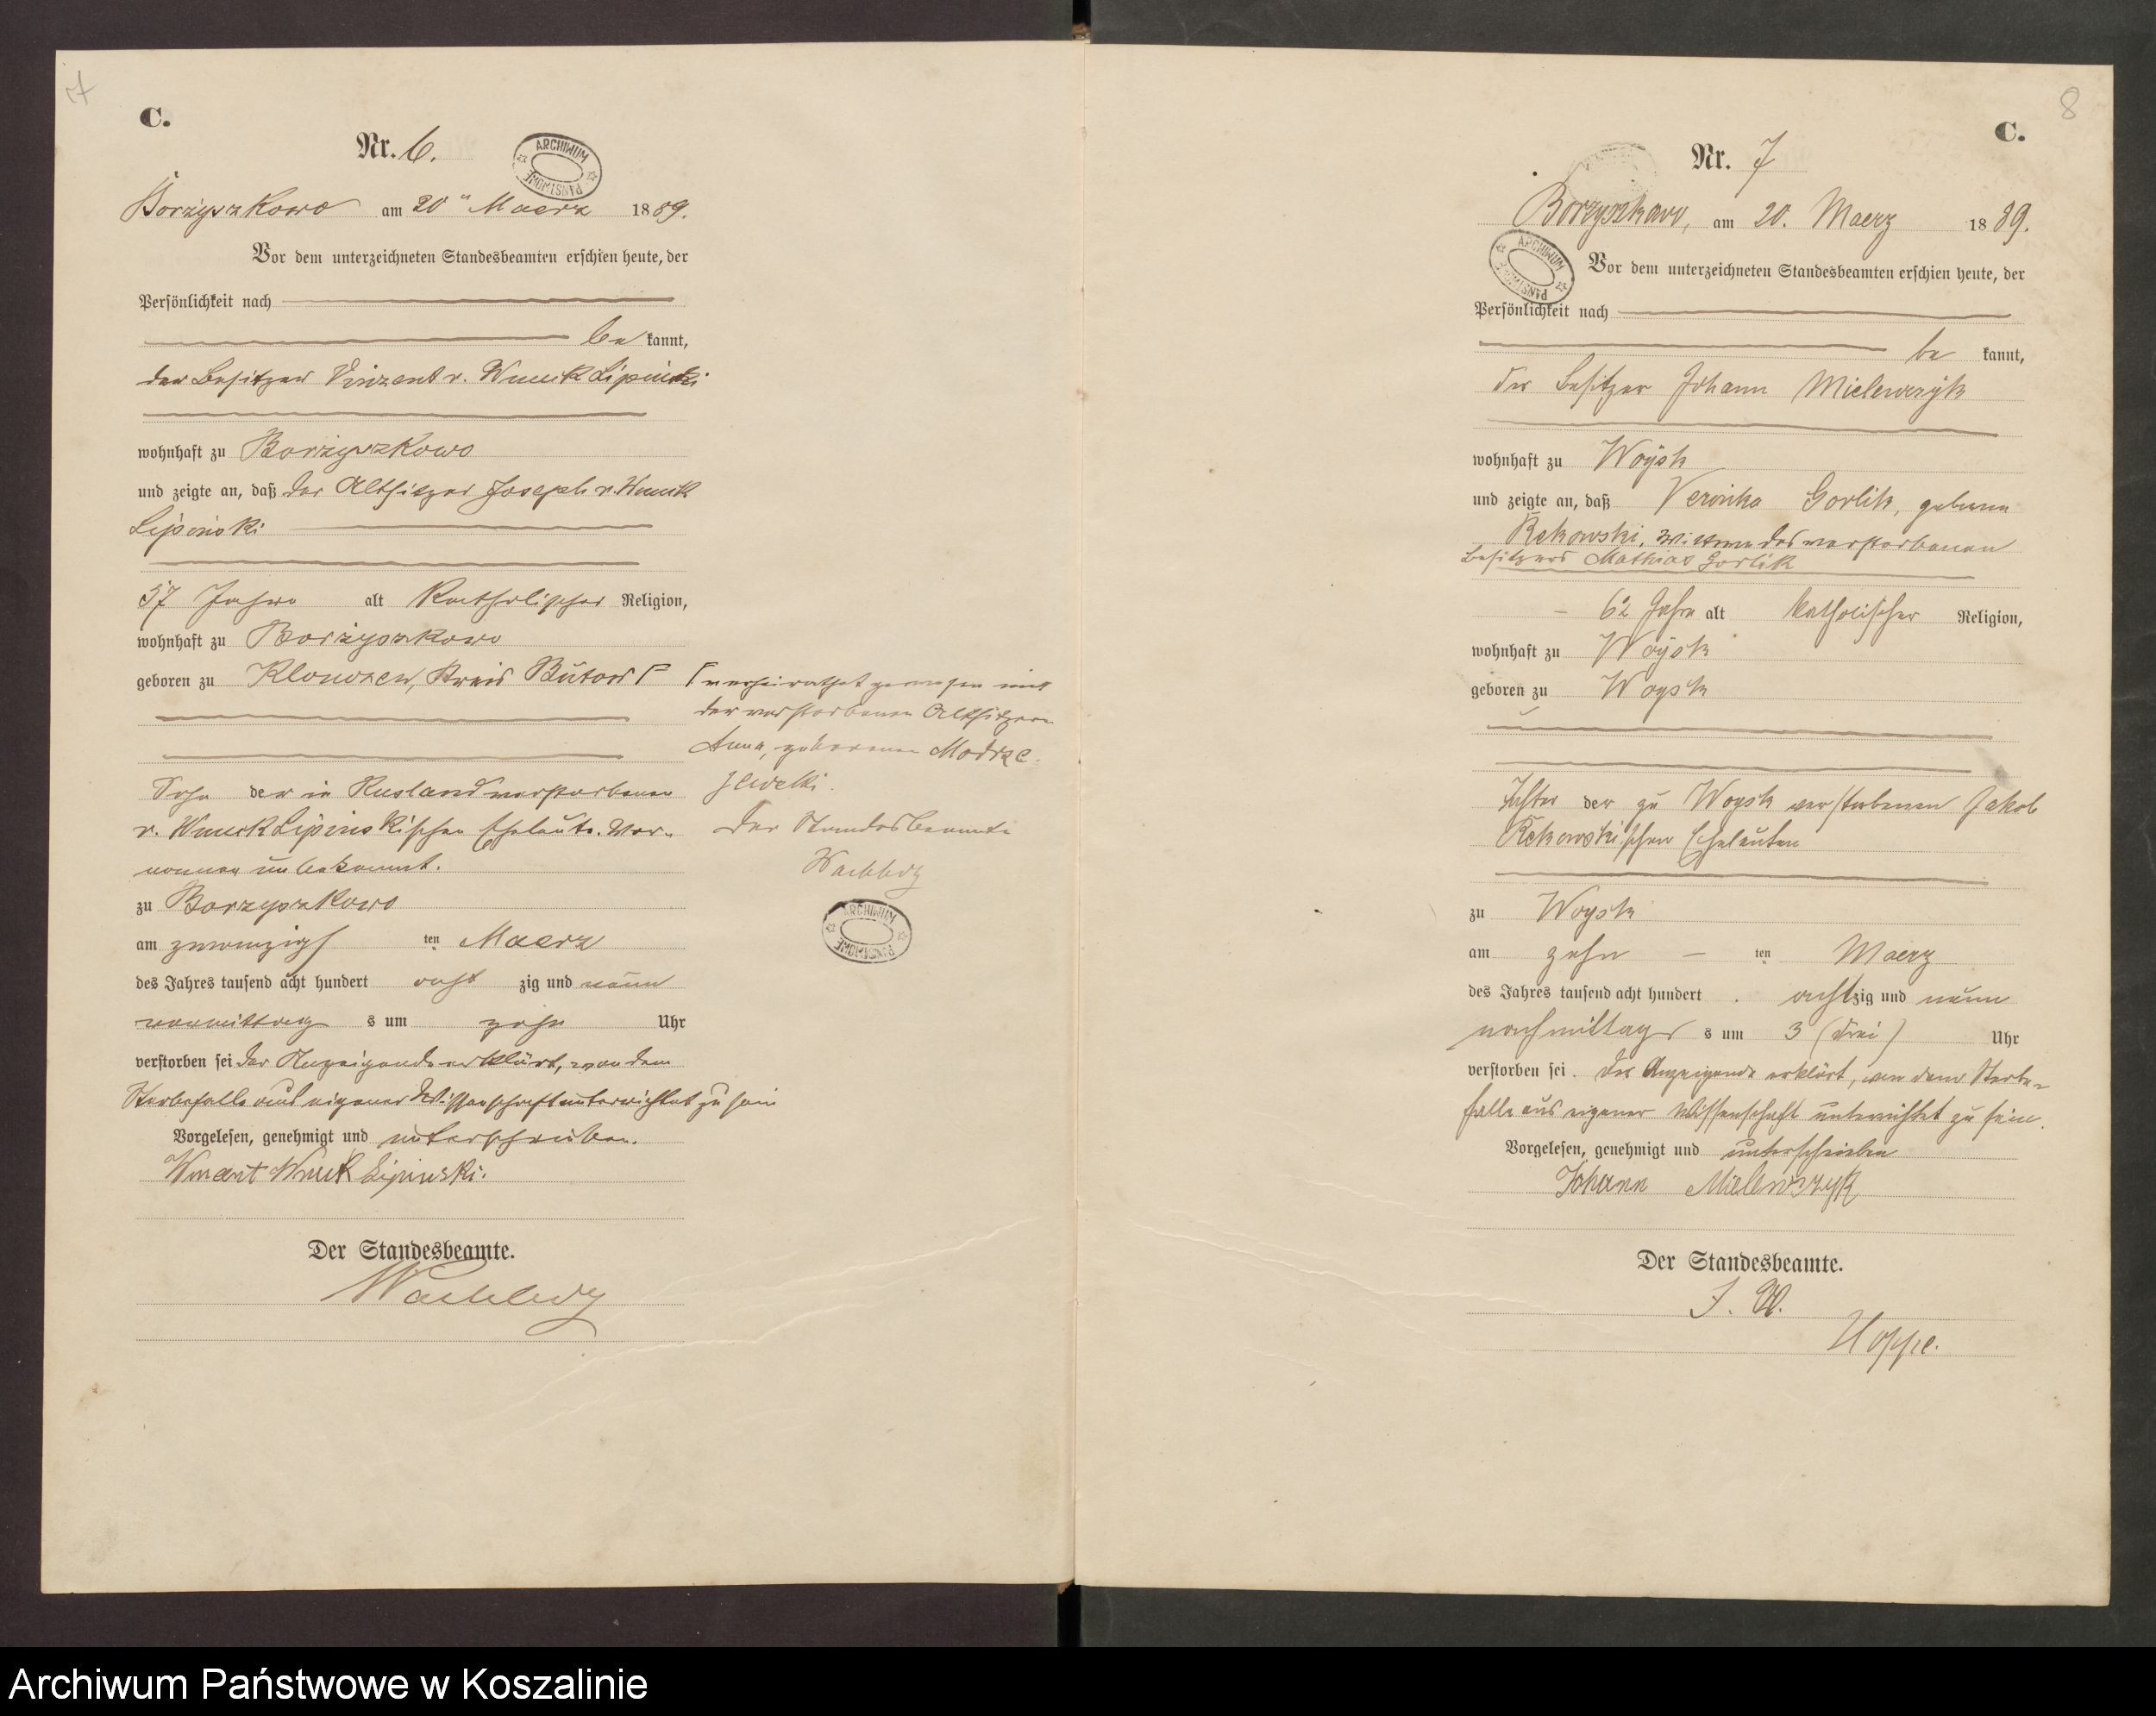 7
C.
Nr. 6.
ARCHIWUM PAŃSTWOWE
Borzyszkowo am 20ten Maerz 1889.
Vor dem unterzeichneten Standesbeamten erschien heute, der
Persönlichkeit nach
be kannt,
der Besitzer Vinzent v. Wnuck Lipinski
wohnhaft zu Borzyszkowo
und zeigte an, daß der Altsitzer Joseph v. Wnuck
Lipinski
57 Jahre alt katholischer Religion,
wohnhaft zu Borzyszkowo
geboren zu Klonszen, Kreis Bütow Γ
Γ verheirathet gewesen mit
der verstorbenen Altsitzerin
Anna, geborenen Modrze-
jewski.
Der Standesbeamte
ARCHIWUM PAŃSTWOWE
Sohn der in Rusland verstorbenen
v. Wnuck Lipinskischen Eheleute. Vor-
namen unbekannt.
zu Borzyszkowo
am zwanzigsten Maerz
des Jahres tausend acht hundert acht zig und neun
vormittag s um zehn Uhr
verstorben sei der Anzeigende erklärt, von dem
Sterbefalle aus eigener Wissenschaft unterrichtet zu sein
Vorgelesen, genehmigt und unterschrieben.
Wincent Wnuk Lipinski.
Der Standesbeamte.
8
C.
Nr. 7
Borzyszkowo, am 20. Maerz 1889.
ARCHIWUM PAŃSTWOWE
Vor dem unterzeichneten Standesbeamten erschien heute, der
Persönlichkeit nach
be kannt,
der Besitzer Johann Mielewczyk
wohnhaft zu Woysk
und zeigte an, daß Veronika Gorlik, geborne
Rekowski, Wittwe des verstorbenen
Besitzers Mathias Gorlik
62 Jahre alt katholischer Religion,
wohnhaft zu Woysk
geboren zu Woysk
Tochter der zu Woysk verstorbenen Jakob
Rekowskischen Eheleuten
zu Woysk
am zehn ten Maerz
des Jahres tausend acht hundert achtzig und neun
nachmittags s um 3 (drei) Uhr
verstorben sei. Der Anzeigende erklärt, von dem Sterbe-
falle aus eigener Wissenschaft unterrichtet zu sein.
Vorgelesen, genehmigt und unterschrieben
Johann Mielewczyk
Der Standesbeamte.
J. V.
Hoppe.
Archiwum Państwowe w Koszalinie